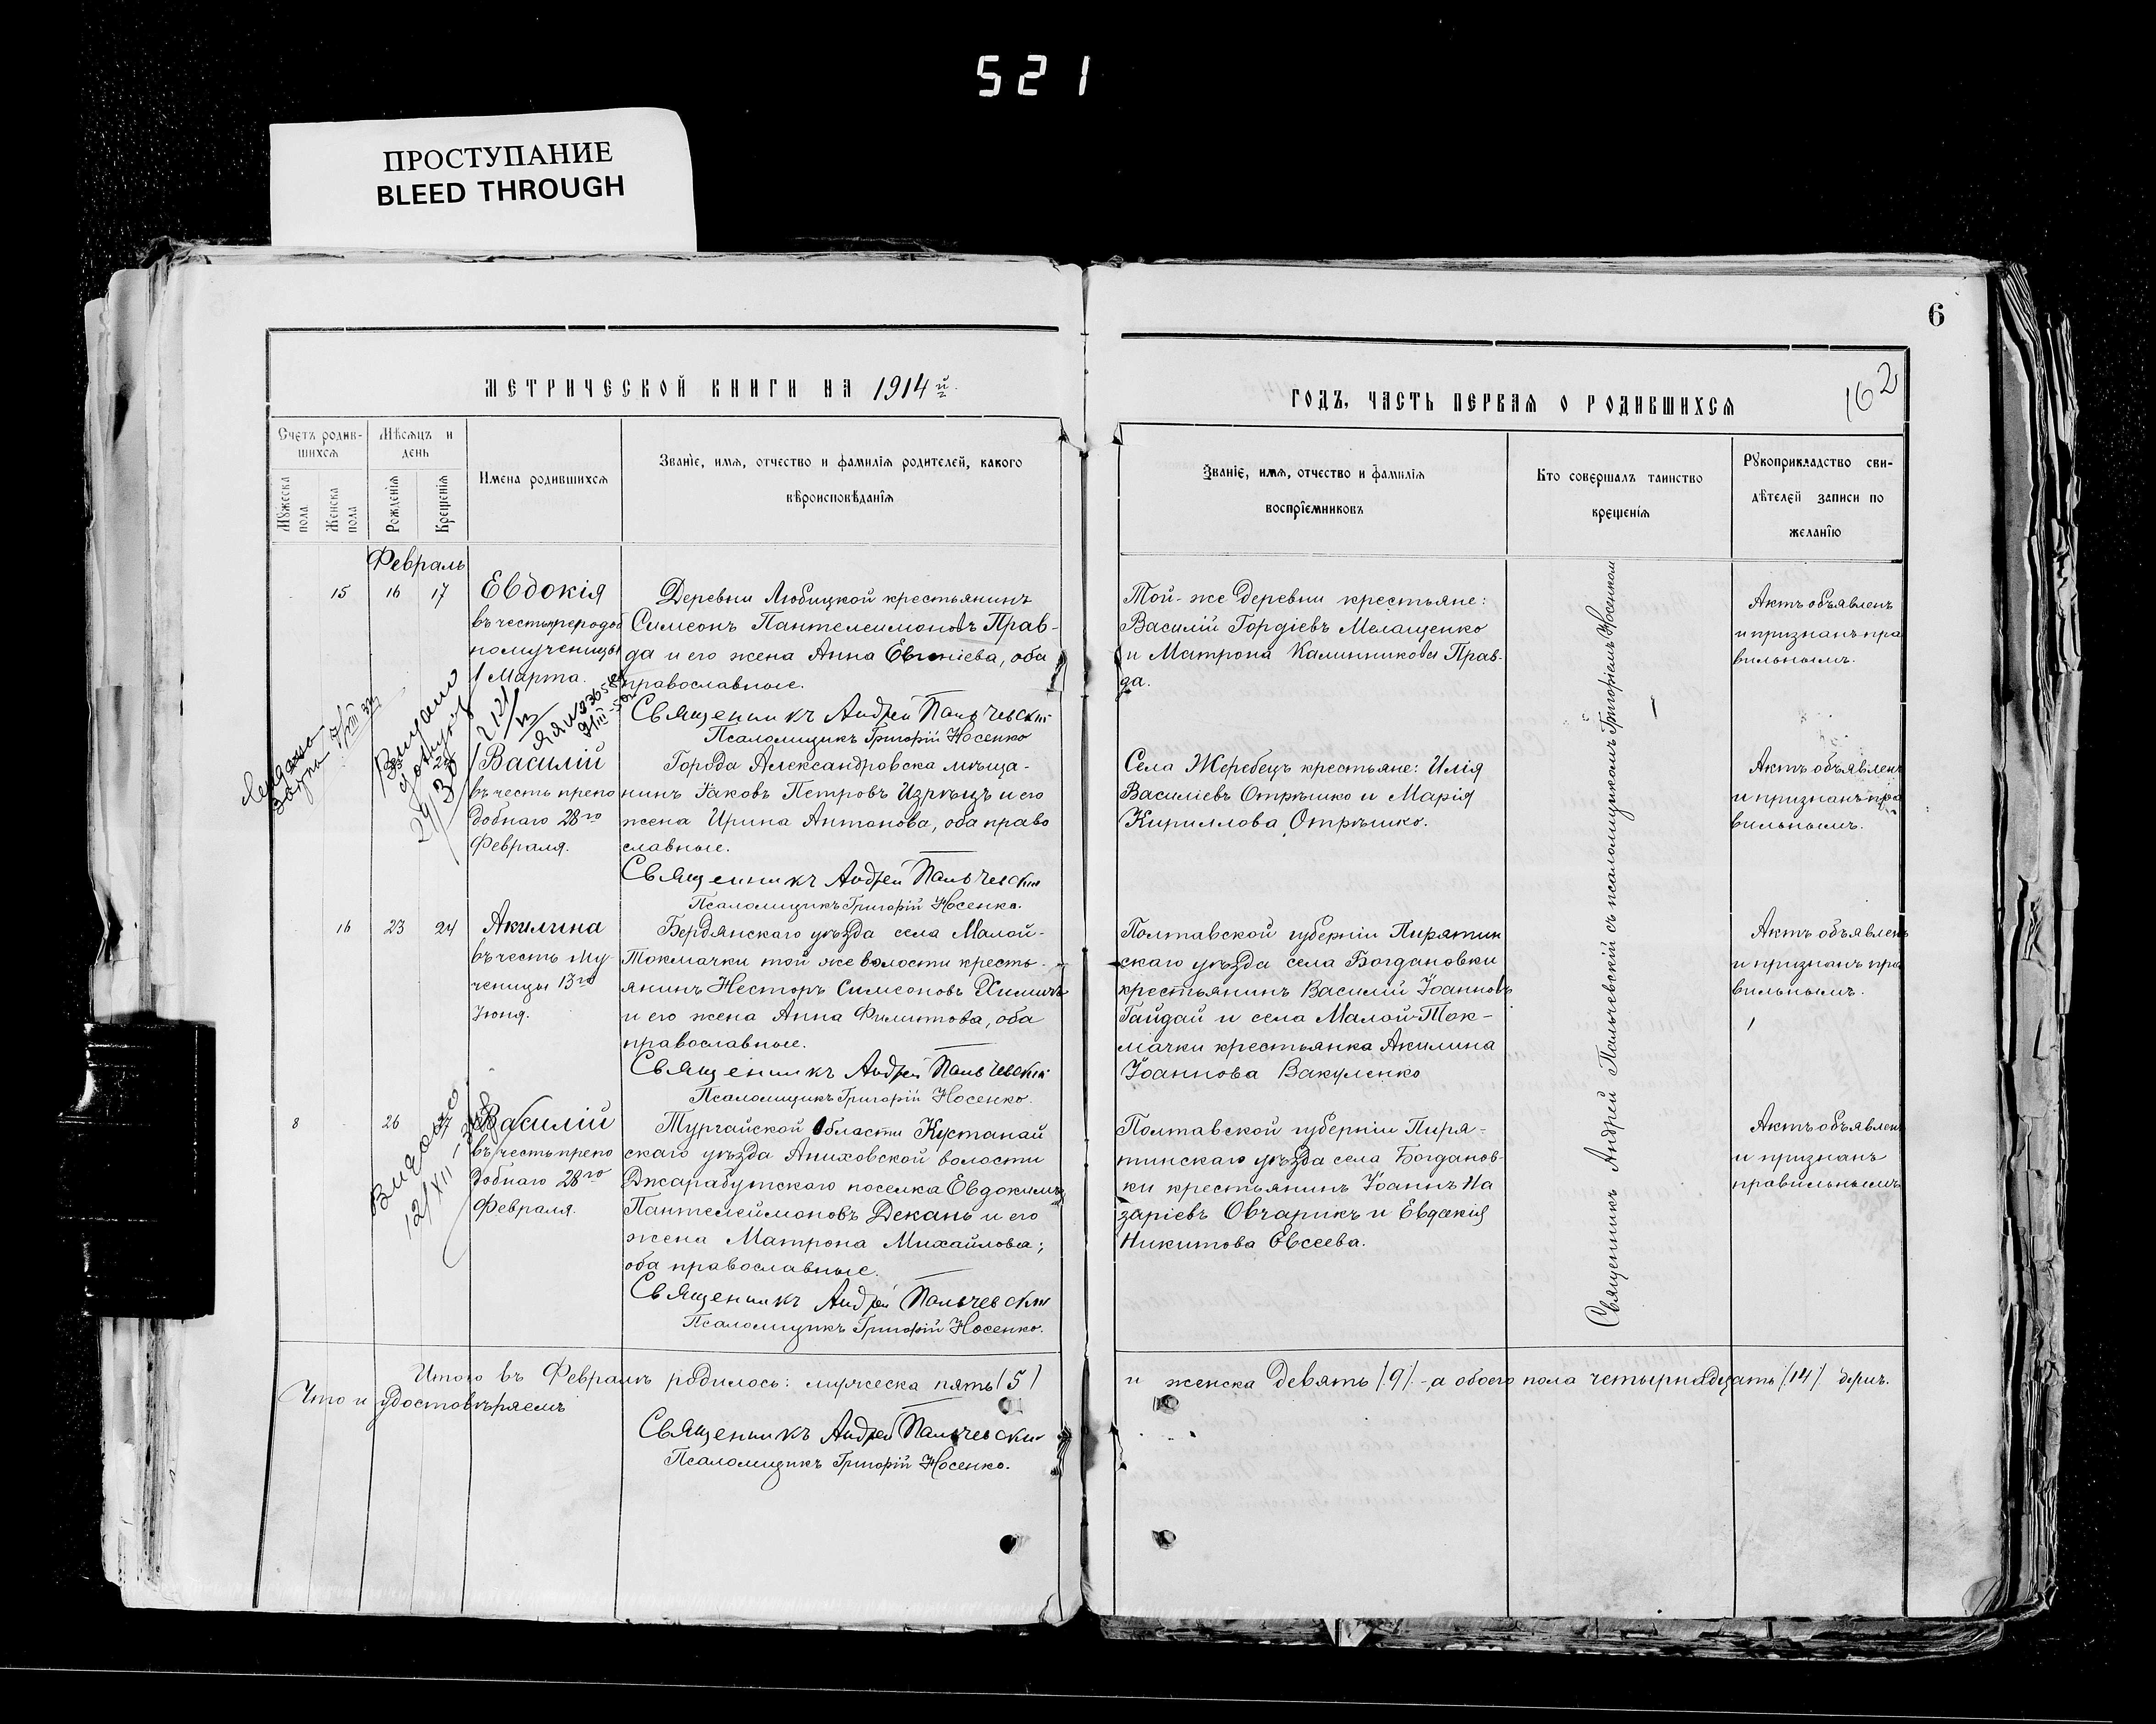 521
ПРОСТУПАНИЕ
BLEED THROUGH
6
162
МЕТРИЧЕСКОЙ КНИГИ НА 1914й
ГОДЪ, ЧАСТЬ ПЕРВАЯ О РОДИВШИХСЯ
Счетъ родив-
шихся
Мужеска
пола
Женска
пола
Мѣсяцъ и
день
Рожденія
Крещенія
Имена родившихся
Званіе, имя, отчество и фамилія родителей, какого
вѣроисповѣданія
Званіе, имя, отчество и фамилія
воспріемниковъ
Кто совершалъ таинство
крещенія
Рукоприкладство сви-
дѣтелей записи по
желанію
Февраль
15 16 17
Евдокія
въ честь преподоб
номученицы
1 Марта.
Деревни Любицкой крестьянинъ
Симеонъ Пантелеимоновъ Прав-
да и его жена Анна, оба
православные.
Священникъ Андрей Пальчевскій
Псаломщикъ Григорій Носенко
Той-же деревни крестьяне:
Василій Гордіевъ Мелащенко
и Матрона Калинникова Прав-
да.
Актъ объявленъ
и признанъ пра
вильнымъ.
Василій
въ честь препо
добнаго 28го
Февраля.
Города Александровска мѣща-
нинъ Іаковъ Петровъ и его
жена Ирина Антонова, оба право
славные.
Священникъ Андрей Пальчевскій
Псаломщикъ Григорій Носенко.
Села Жеребецъ крестьяне: Илія
Василіевъ Отрѣшко и Марія
Кириллова Отрѣшко.
Актъ объявленъ
и признанъ пра
вильнымъ.
16 23 24
Акилина
въ честь му-
ченицы 13го
Іюня.
Бердянскаго уѣзда села Малой-
Токмачки той же волости кресть-
янинъ Несторъ Симеоновъ
и его жена Анна Филиппова, оба
православные.
Священникъ Андрей Пальчевскій
Псаломщикъ Григорій Носенко.
Полтавской губерніи Пирятин
скаго уѣзда села Богдановки
крестьянинъ Василій Іоанновъ
Гайдай и села Малой-Ток-
мачки крестьянка Акилина
Іоаннова Вакуленко
Актъ объявленъ
и признанъ пра
вильнымъ.
8 26
Василій
въ честь препо
добнаго 28го
Февраля.
Тургайской Области Кустанай
скаго уѣзда Аниховской волости
Джарабутскаго поселка Евдокимъ
Пантелеймоновъ Декань и его
жена Матрона Михайлова;
оба православные.
Священникъ Андрей Пальчевскій
Псаломщикъ Григорій Носенко.
Полтавской губерніи Пиря-
тинскаго уѣзда села Богданов-
ки крестьянинъ Іоаннъ На
заріевъ Овчарикъ и Евдокія
Никитова Евсеева.
Актъ объявленъ
и признанъ
правильнымъ
Священникъ Андрей Пальчевскій съ псаломщикомъ Григоріемъ Носенкомъ
Итого въ Февралѣ родилось: мужеска пять (5)
и женска девять (9), а обоего пола четырнадцать (14) душъ.
Что и удостовѣряемъ
Священникъ Андрей Пальчевскій
Псаломщикъ Григорій Носенко.